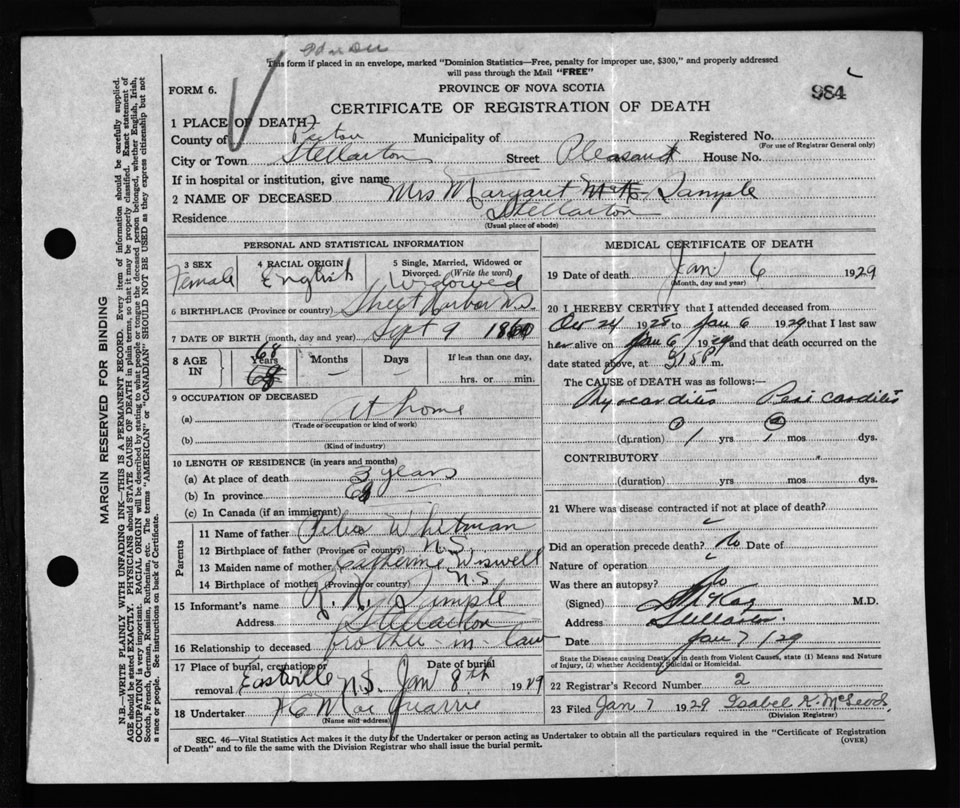 This form if placed in an envelope, marked "Dominion Statistics—Free, penalty for improper use, $300," and properly addressed
will pass through the Mail "FREE"
FORM 6.
PROVINCE OF NOVA SCOTIA
984
CERTIFICATE OF REGISTRATION OF DEATH
1 PLACE OF DEATH
County of Pictou Municipality of Registered No.
(For use of Registrar General only)
City or Town Stellarton Street Pleasant House No.
If in hospital or institution, give name
2 NAME OF DECEASED Mrs Margaret Sample
Residence Stellarton
(Usual place of abode)
PERSONAL AND STATISTICAL INFORMATION
3 SEX 4 RACIAL ORIGIN 5 Single, Married, Widowed or Divorced. (Write the word)
Female English Widowed
6 BIRTHPLACE (Province or country) Harbor N.S.
7 DATE OF BIRTH (month, day and year) Sept 9 1860
8 AGE IN Years 68 Months — Days — If less than one day, hrs. or min.
68
9 OCCUPATION OF DECEASED
(a) At home
(Trade or occupation or kind of work)
(b)
(Kind of industry)
10 LENGTH OF RESIDENCE (in years and months)
(a) At place of death 3 years
(b) In province 68 —
(c) In Canada (if an immigrant)
Parents
11 Name of father Whitman
12 Birthplace of father (Province or country) N.S.
13 Maiden name of mother Catherine Wiswell
14 Birthplace of mother (Province or country) N.S
15 Informant's name Simple
Address Stellarton
16 Relationship to deceased brother-in-law
17 Place of burial, cremation or removal Eastville N.S. Date of burial Jan 8th 1929
18 Undertaker
(Name and address)
MEDICAL CERTIFICATE OF DEATH
19 Date of death Jan 6 1929
(Month, day and year)
20 I HEREBY CERTIFY that I attended deceased from
24 1928 to Jan 6 1929 that I last saw
her alive on Jan 6 1929 and that death occurred on the
date stated above, at m.
The CAUSE of DEATH was as follows:—
Myocarditis Pericarditis
(duration) 1 yrs mos dys.
CONTRIBUTORY
(duration) yrs mos dys.
21 Where was disease contracted if not at place of death?
Did an operation precede death? No Date of
Nature of operation
Was there an autopsy? No
(Signed) M.D.
Address Stellarton
Date Jan 7/29
State the Disease causing Death, or in death from Violent Causes, state (1) Means and Nature
of Injury, (2) whether Accidental, Suicidal or Homicidal.
22 Registrar's Record Number 2
23 Filed Jan 7 1929 Isabel K. McLeod
(Division Registrar)
SEC. 46—Vital Statistics Act makes it the duty of the Undertaker or person acting as Undertaker to obtain all the particulars required in the "Certificate of Registration
of Death" and to file the same with the Division Registrar who shall issue the burial permit.
(OVER)
MARGIN RESERVED FOR BINDING
N.B.—WRITE PLAINLY WITH UNFADING INK—THIS IS A PERMANENT RECORD. Every item of information should be carefully supplied.
AGE should be stated EXACTLY. PHYSICIANS should STATE CAUSE OF DEATH in plain terms, so that it may be properly classified. Exact statement of
OCCUPATION is very important. RACIAL ORIGIN will be described by stating to what people or tongue the deceased person belonged, whether English, Irish,
Scotch, French, German, Russian, Ruthenian, etc. The terms "AMERICAN" or "CANADIAN" SHOULD NOT BE USED as they express citizenship but not
a race or people. See instructions on back of Certificate.